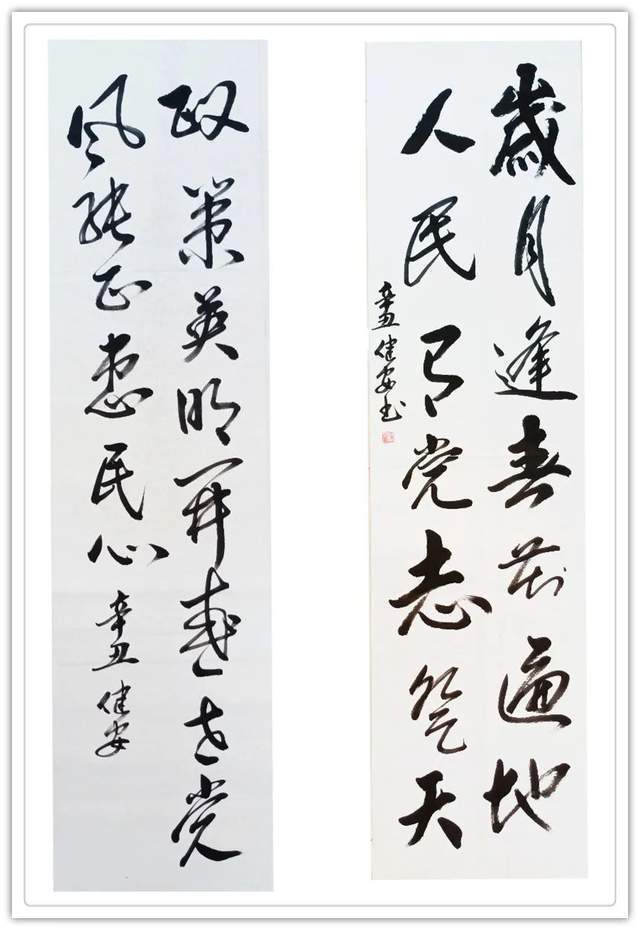 歲月逢春花遍地
人民有党志登天
辛丑健安书
政策英明開盛世党
风纯正惠民心
辛丑健安